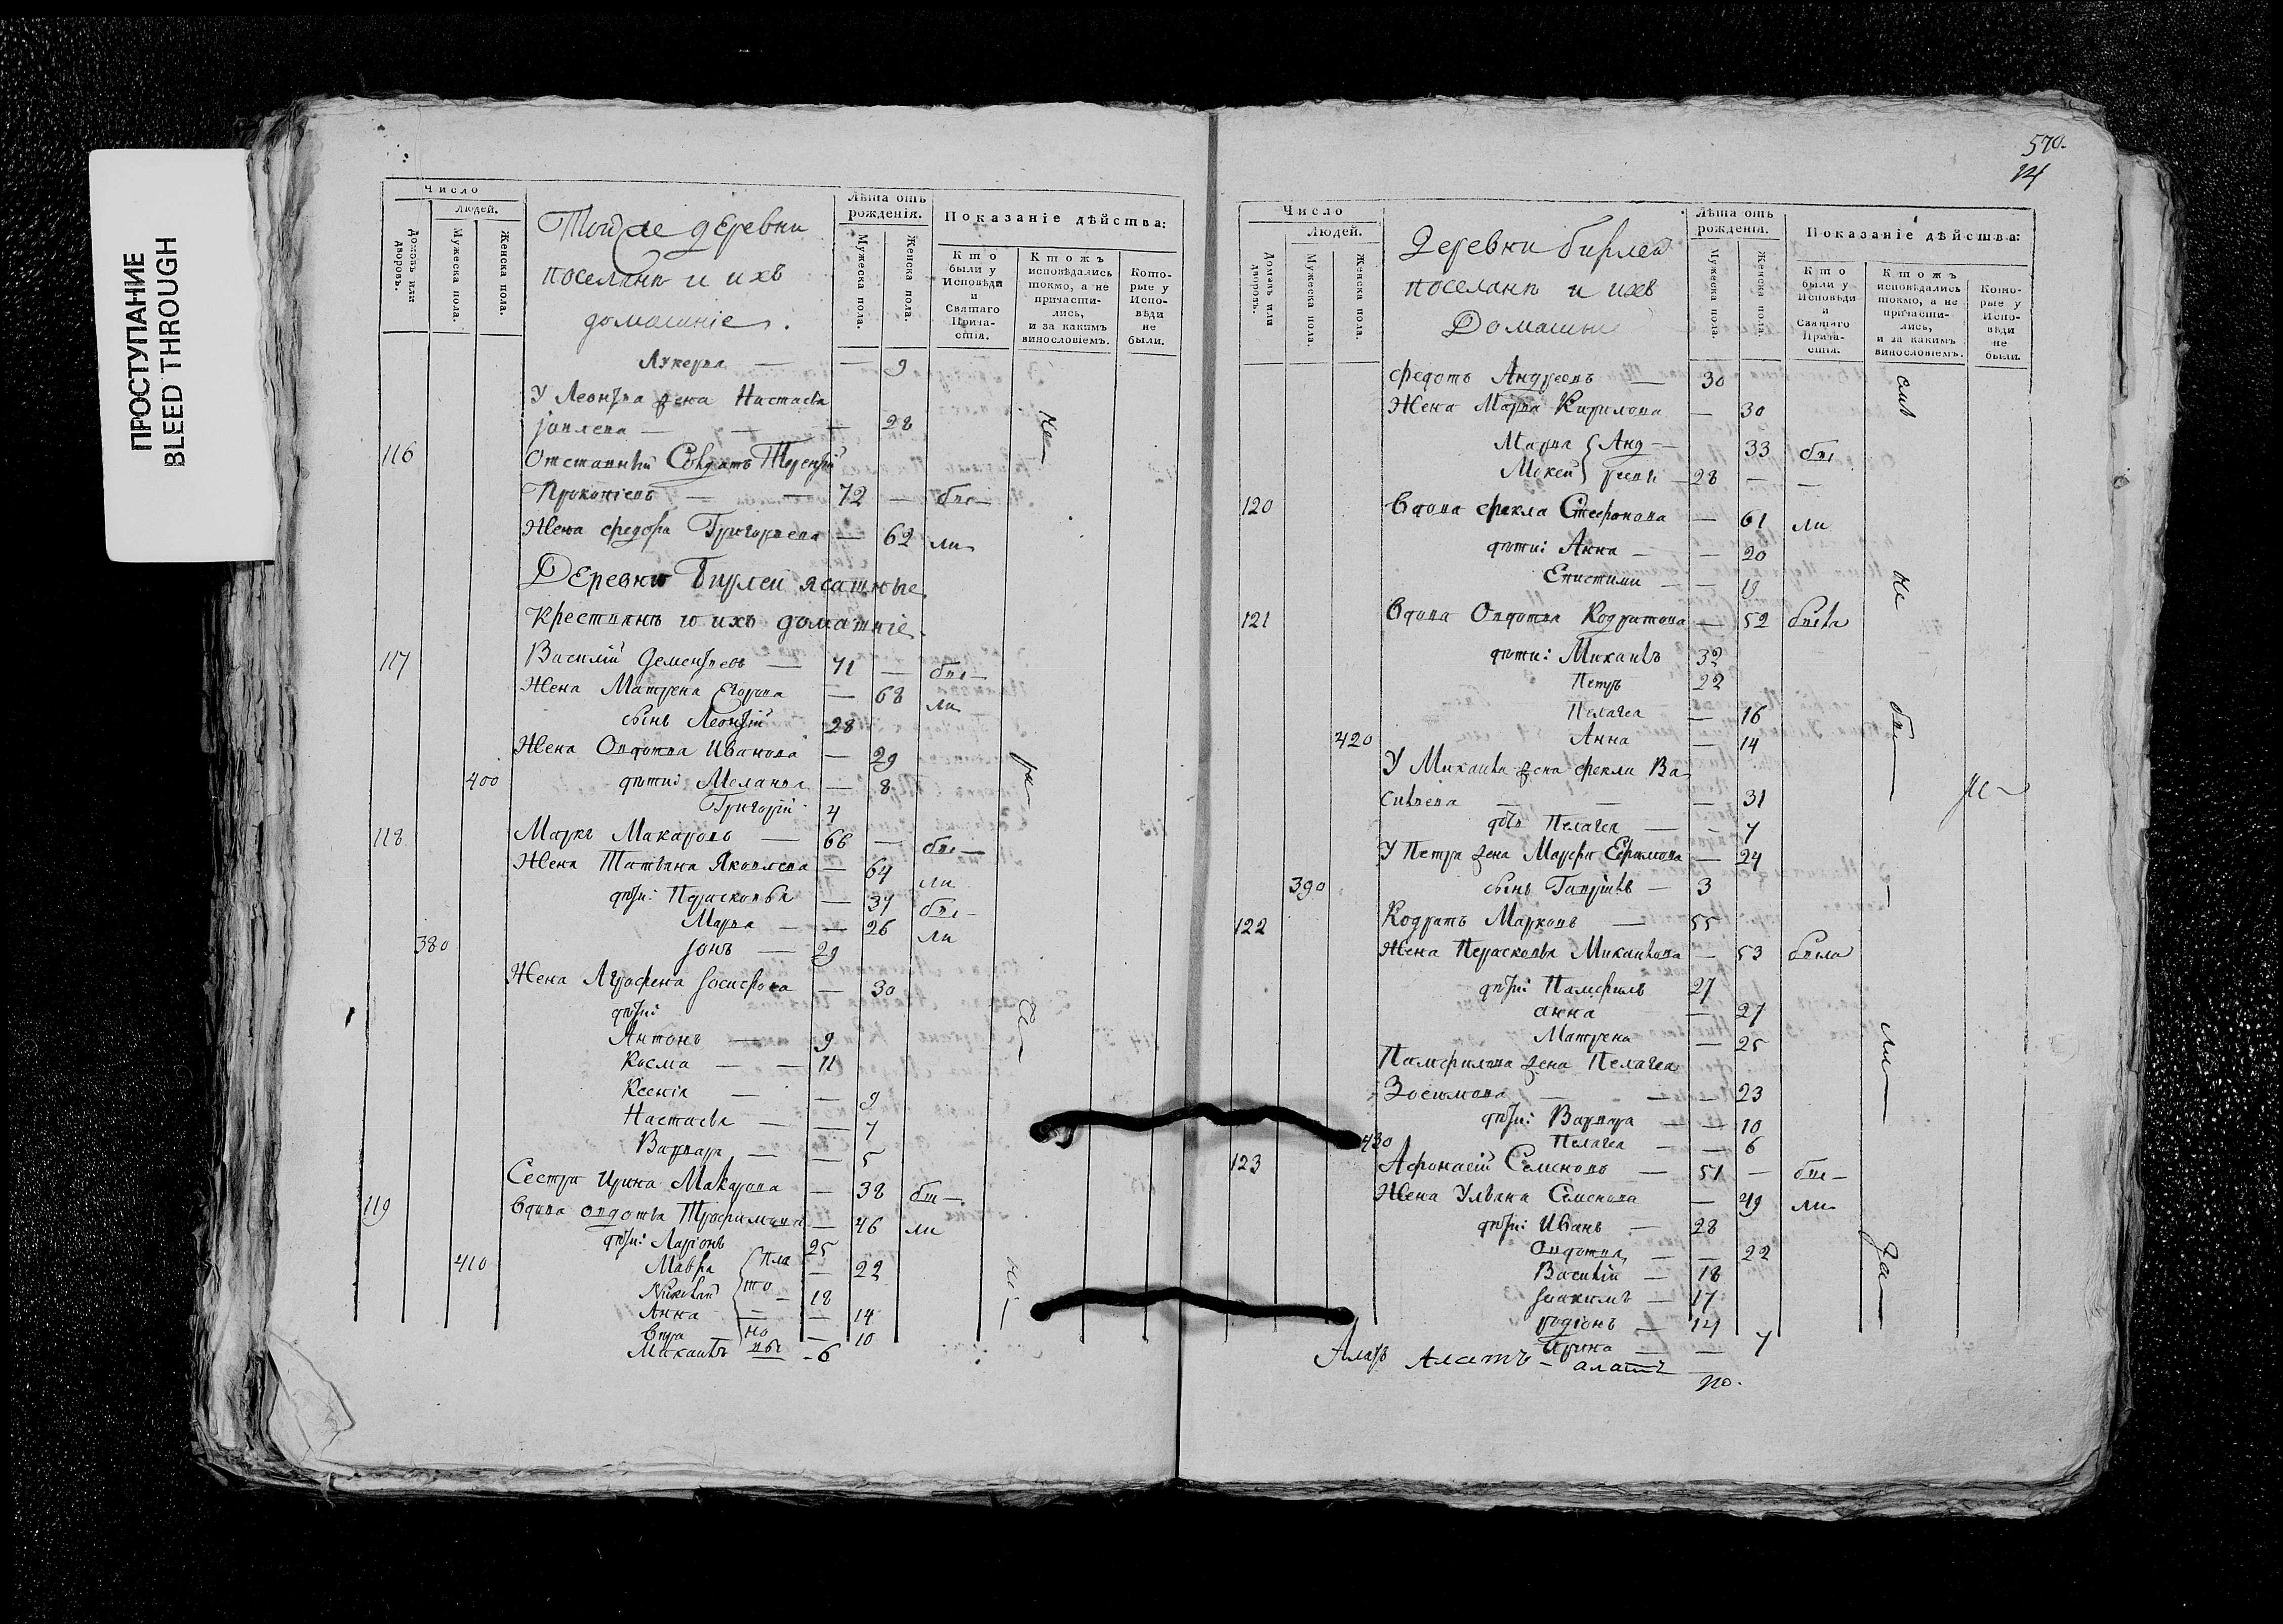 ПРОСТУПАНИЕ
BLEED THROUGH
Число
Людей.
Домовъ или дворовъ.
Мужеска пола.
Женска пола.
Тойже деревни
поселянъ и ихъ
домашнїе.
Лѣта отъ рожденїя.
Мужеска пола.
Женска пола.
Показанїе дѣйства:
Кто были у Исповѣди и Святаго Прича-стїя.
Ктожъ исповѣдались токмо, а не причасти-лись, и за какимъ винословїемъ.
Кото-рые у Испо-вѣди не были.
Лукерья — — 9
У Леонтья жена Настасья
Іовлева — — — 28
116 Отставный Солдатъ Терентїй
Прокопїевъ — — 72 — бы—
Жена Федора Григорьева — 62 ли
Деревни Бирлей ясашные
крестьянъ и ихъ домашнїе.
117 Василїй Дементьевъ — 71 — бы—
Жена Матрена Егорова — 68 ли
сынъ Леонтїй 28
Жена Овдотья Иванова — 29
400 дѣти: Меланья — 8
Григорїй 4
118 Маркъ Макаровъ — 66 — бы—
Жена Татьяна Яковлева — 64 ли
дѣти: Парасковья — 37 бы—
Марья — — 26 ли
380 Іонъ — 29
Жена Аграфена Іосифова — 30
дѣти
Антонъ — 9
Косма — — 11
Ксенїя — — 9
Настасья — — 7
Варвара — — 5
Сестра Ирина Макарова — 38 бы—
119 Вдова Овдотья Трофимова — 46 ли
дѣти: Ларїонъ 25
410 Мавра Пла — 22
Николай то — 18
Анна — — 14
Вера но — 10
Михаилъ вы - 6
570.
14
Число
Людей.
Домовъ или дворовъ.
Мужеска пола.
Женска пола.
Деревни Бирлей
поселянъ и ихъ
Домашнїе
Лѣта отъ рожденїя.
Мужеска пола.
Женска пола.
Показанїе дѣйства:
Кто были у Исповѣди и Святаго Прича-стїя.
Ктожъ исповѣдались токмо, а не причасти-лись, и за какимъ винословїемъ.
Кото-рые у Испо-вѣди не были.
Федотъ Андреевъ — 30
Жена Марья Кирилова — 30
Марья Анд — 33 бы
Мокей реевы — 28 — —
120 Вдова Фекла Стефанова — 61 ли
дѣти: Анна — — 20
Епистимия — — 19
121 Вдова Овдотья Кодратова — 52 была
дѣти: Михаилъ 32
Петръ 22
Пелагея — 16
420 Анна — 14
У Михаила жена Фекла Ва
сильева — — — 31
дочь Пелагея — — 7
У Петра жена Марфа Ефимова — 24
390 сынъ Гаврилъ — 3
122 Кодратъ Марковъ — 55
Жена Парасковья Михайлова — 53 была
дѣти: Памфилъ 27
анна — 27
Матрена — 25
Памфилова жена Пелагея
Зосимова — — — 23
дѣти: Варвара — — 10
430 Пелагея — — 6
123 Афонасїй Семеновъ — 51 — бы—
Жена Ульяна Семенова — 49 ли
дѣти: Иванъ — 28
Овдотья — — 22
Василїй — 18
Іоакимъ — 17
родїонъ — 14
Ирина — — 7